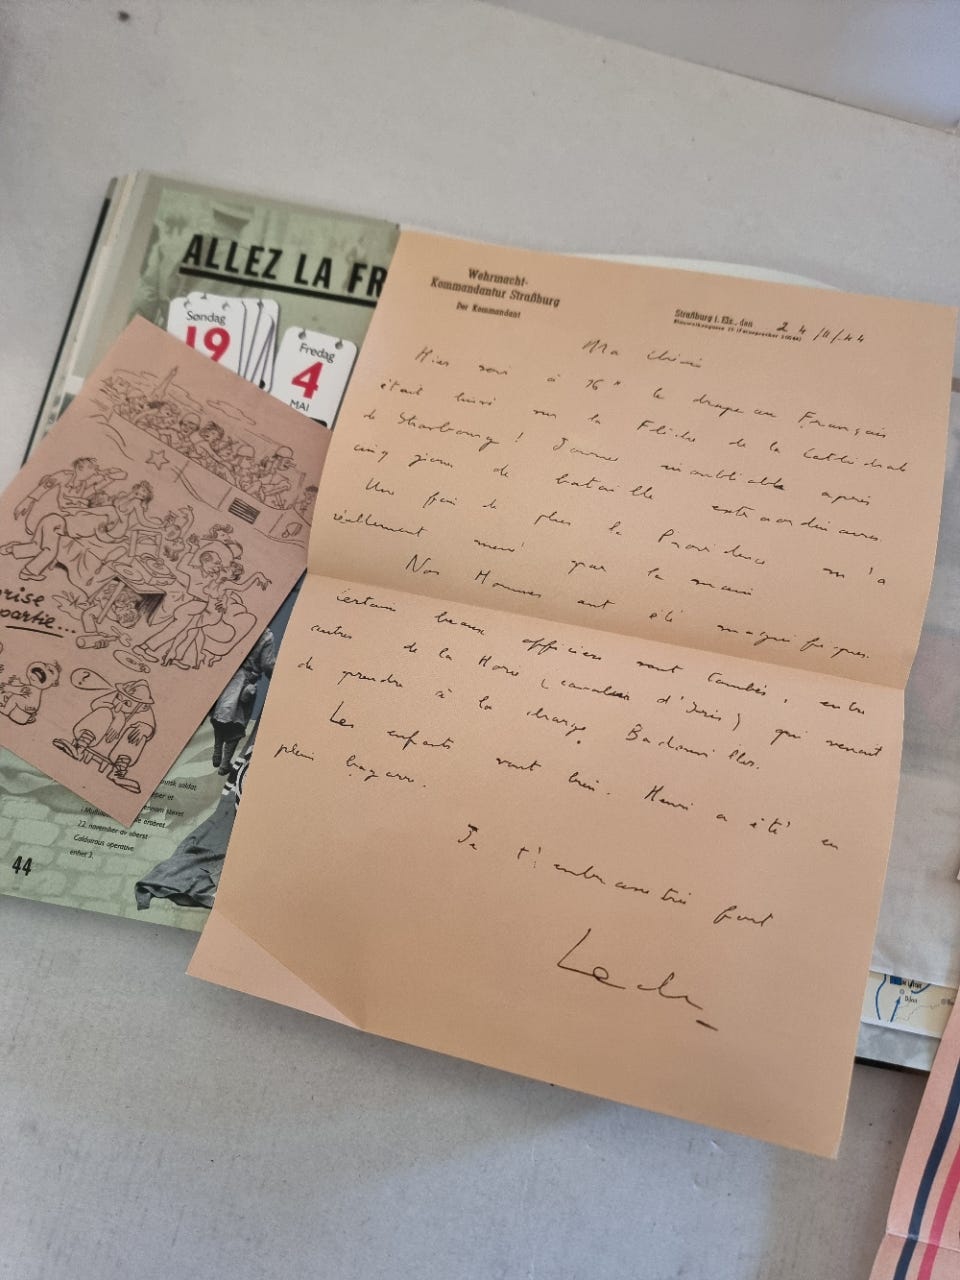 ALLEZ LA FR
Søndag
19
Fredag
4
MAI
rise
partie...
?
nsk soldat
22. november av oberst
Caldairous operative
enhet 3.
44
Wehrmacht-
Kommandantur Straßburg
Der Kommandant
Straßburg i. Els., den 24/11/44
Ma chérie
Hier soir à 16h le drapeau Français
était hissé sur la Flèche de la Cathédrale
de Strasbourg ! Journée inoubliable après
cinq jours de bataille extraordinaires.
Une fois de plus la Providence m'a
réellement mené par la main
Nos Hommes ont été magnifiques.
Certains beaux officiers sont tombés, entre
autres de la Horie (cavalerie d') qui venait
de prendre à la charge Badonviller.
Les enfants vont bien. Henri a été en
plein bagarre.
Je t'embrasse très fort